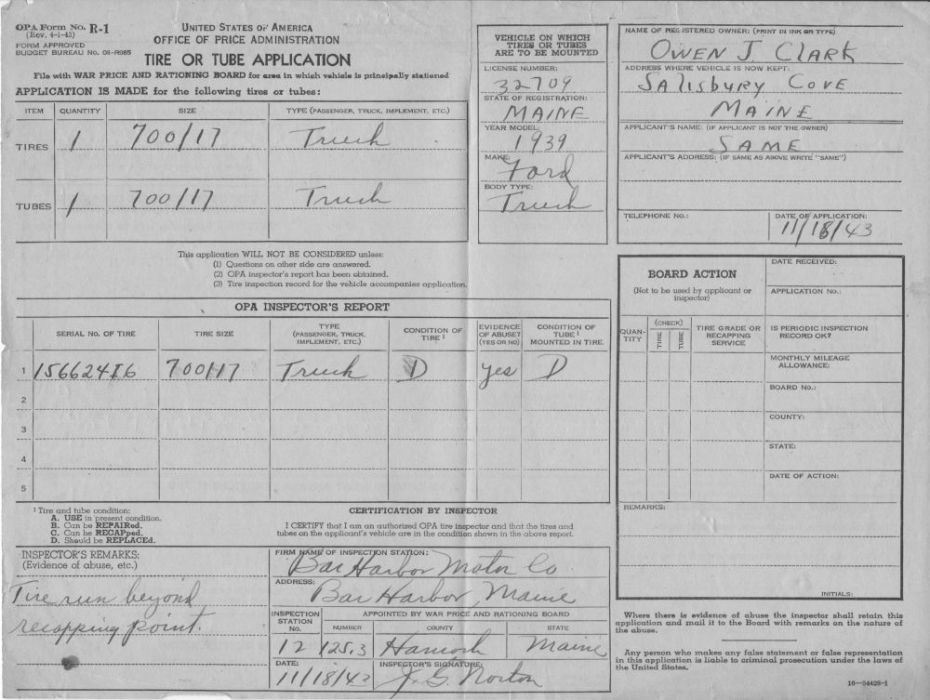 OPA Form No. R-1
(Rev. 4-1-43)
FORM APPROVED
BUDGET BUREAU No. 08-R685
UNITED STATES OF AMERICA
OFFICE OF PRICE ADMINISTRATION
TIRE OR TUBE APPLICATION
File with WAR PRICE AND RATIONING BOARD for area in which vehicle is principally stationed
APPLICATION IS MADE for the following tires or tubes:
ITEM QUANTITY SIZE TYPE (PASSENGER, TRUCK, IMPLEMENT, ETC.)
TIRES 1 700/17 Truck
TUBES 1 700/17 Truck
VEHICLE ON WHICH
TIRES OR TUBES
ARE TO BE MOUNTED
LICENSE NUMBER:
32709
STATE OF REGISTRATION:
MAINE
YEAR MODEL:
1939
MAKE:
Ford
BODY TYPE:
Truck
NAME OF REGISTERED OWNER: (PRINT IN INK OR TYPE)
OWEN J CLARK
ADDRESS WHERE VEHICLE IS NOW KEPT:
SALISBURY COVE
MAINE
APPLICANT'S NAME: (IF APPLICANT IS NOT THE OWNER)
SAME
APPLICANT'S ADDRESS: (IF SAME AS ABOVE WRITE "SAME")
TELEPHONE NO.: DATE OF APPLICATION:
11/18/43
This application WILL NOT BE CONSIDERED unless:
(1) Questions on other side are answered.
(2) OPA inspector's report has been obtained.
(3) Tire inspection record for the vehicle accompanies application.
OPA INSPECTOR'S REPORT
SERIAL NO. OF TIRE TIRE SIZE TYPE (PASSENGER, TRUCK, IMPLEMENT, ETC.) CONDITION OF TIRE¹ EVIDENCE OF ABUSE? (YES OR NO) CONDITION OF TUBE¹ MOUNTED IN TIRE
1 700/17 Truck D yes D
2
3
4
5
¹ Tire and tube condition:
A. USE in present condition.
B. Can be REPAIRed.
C. Can be RECAPped.
D. Should be REPLACEd.
CERTIFICATION BY INSPECTOR
I CERTIFY that I am an authorized OPA tire inspector and that the tires and
tubes on the applicant's vehicle are in the condition shown in the above report.
INSPECTOR'S REMARKS:
(Evidence of abuse, etc.)
Tire run beyond
recapping point.
FIRM NAME OF INSPECTION STATION:
Bar Harbor Motor Co
ADDRESS:
Bar Harbor, Maine
INSPECTION STATION No. APPOINTED BY WAR PRICE AND RATIONING BOARD
NUMBER COUNTY STATE
12 125.3 Hancock Maine
DATE: INSPECTOR'S SIGNATURE:
11/18/43 J. G. Norton
BOARD ACTION
(Not to be used by applicant or
inspector)
QUANTITY (CHECK) TIRE TUBE TIRE GRADE OR RECAPPING SERVICE
DATE RECEIVED:
APPLICATION NO.:
IS PERIODIC INSPECTION
RECORD OK?
MONTHLY MILEAGE
ALLOWANCE:
BOARD NO.:
COUNTY:
STATE:
DATE OF ACTION:
REMARKS:
INITIALS:
Where there is evidence of abuse the inspector shall retain this
application and mail it to the Board with remarks on the nature of
the abuse.
Any person who makes any false statement or false representation
in this application is liable to criminal prosecution under the laws of
the United States.
16—34428-1